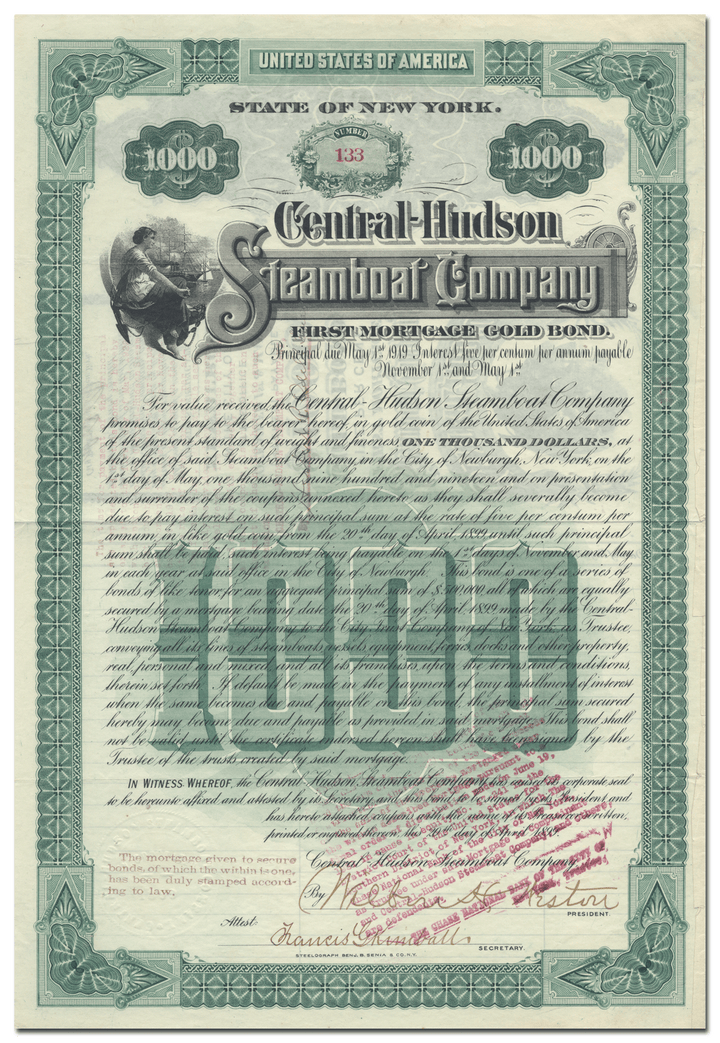 UNITED STATES OF AMERICA
STATE OF NEW YORK.
1000
NUMBER
133
1000
Central-Hudson
Steamboat Company
FIRST MORTGAGE GOLD BOND.
Principal due May 1st 1919 Interest five per centum per annum payable
November 1st and May 1st
For value received the Central-Hudson Steamboat Company
promises to pay to the bearer hereof, in gold coin of the United States of America
of the present standard of weight and fineness ONE THOUSAND DOLLARS, at
the office of said Steamboat Company, in the City of Newburgh, New York, on the
1st day of May, one thousand nine hundred and nineteen and on presentation
and surrender of the coupons annexed hereto as they shall severally become
due, to pay interest on such principal sum at the rate of five per centum per
annum, in like gold coin, from the 20th day of April 1899 until such principal
sum shall be paid, such interest being payable on the 1st days of November and May
in each year at said office in the City of Newburgh. This bond is one of a series of
bonds of like tenor, for an aggregate principal sum of $500,000, all of which are equally
secured by a mortgage bearing date the 20th day of April 1899 made by the Central-
Hudson Steamboat Company to the City Trust Company of New York as Trustee,
conveying all its lines of steamboats vessels, equipment, docks and other property,
real, personal and mixed, and all its franchises, upon the terms and conditions
therein set forth. If default be made in the payment of any installment of interest
when the same becomes due and payable on this bond, the principal sum secured
hereby may become due and payable as provided in said mortgage. This bond shall
not be valid until the certificate endorsed hereon shall have been signed by the
Trustee of the trusts created by said mortgage.
IN WITNESS WHEREOF, the Central-Hudson Steamboat Company has caused its corporate seal
to be hereunto affixed and attested by its Secretary and this bond to be signed by its President and
has hereto attached coupons with the name of its Treasurer written,
printed or engraved thereon, the 20th day of April 1899.
The mortgage given to secure
bonds, of which the within is one,
has been duly stamped accord-
ing to law.
Central-Hudson Steamboat Company
By
PRESIDENT.
Attest
Francis
SECRETARY.
STEELOGRAPH BENJ. B. SENIA & CO. N.Y.
1000
June 19,
and Central-Hudson Steamboat Company and others,
are defendants.
THE CHASE NATIONAL BANK OF THE CITY OF